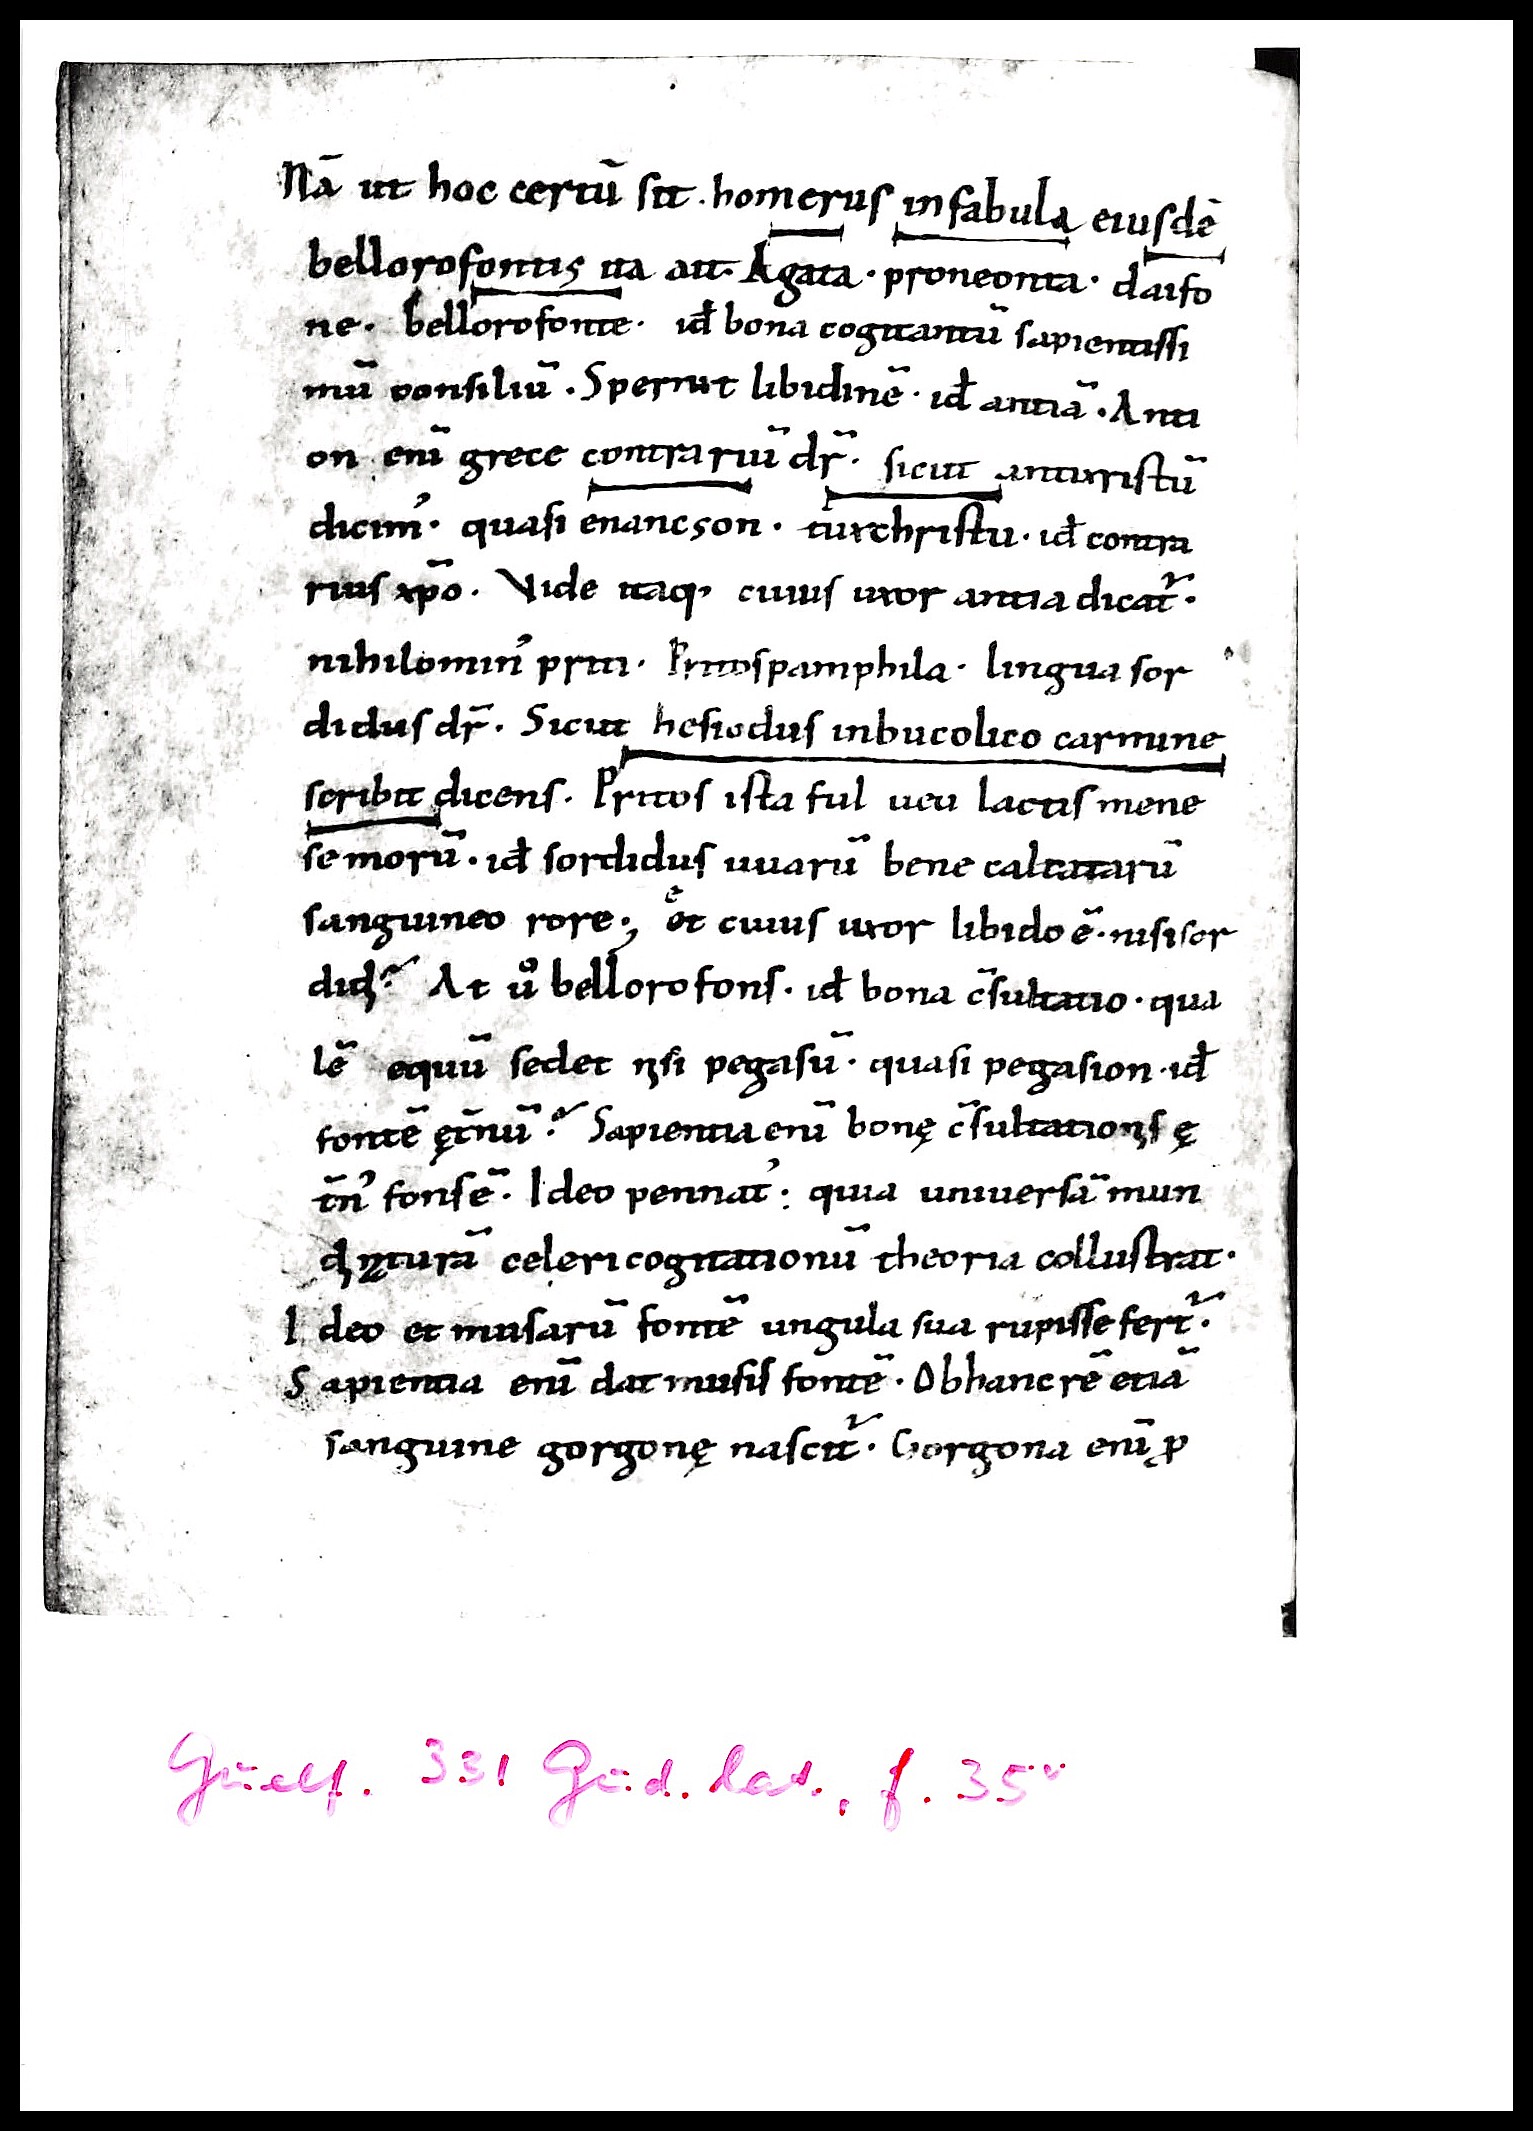 Nā ut hoc certū sit. homerus infabula eiusdē
bellorofontis ita ait. Agata. proneonta. daifo
ne. bellorofonte. id̄ bona cogitantū sapientissi
mū consiliū. Spernit libidinē. id̄ antiā. Anti
on enī grece contrariū dr̄. sicut antixristū
dicim᾽. quasi enancson. tuxchristu. id̄ contra
rius xp̄o. Vide itaq; cuius uxor antia dicat᷑.
nihilomin᾽ priti. Pritospamphila. lingua sor
didus dr̄. Sicut hesiodus inbucolico carmine
scribit dicens. Pritos ista ful ueu lactis mene
se morū. id̄ sordidus uuarū bene calcatarū
sanguineo rore; et cuius uxor libido ē. nisi sor
didi? At ůo bellorofons. id̄ bona c̄sultatio. qua
lē equū sedet nisi pegasū. quasi pegasion. id̄
fontē ęt̄nū? Sapientia enī bonę c̄sultationis ę
t̄n᾽ fons ē. Ideo pennat᾽: quia uniuersā mun
di naturā celeri cogitationū theoria collustrat.
Ideo et musarū fontē ungula sua rupisse fert᷑.
Sapientia enī dat musis fontē. Obhanc rē etiā
sanguine gorgonę nascit᷑. Gorgona enī ꝓ
Guelf. 331 Gud. lat., f. 35ᵛ